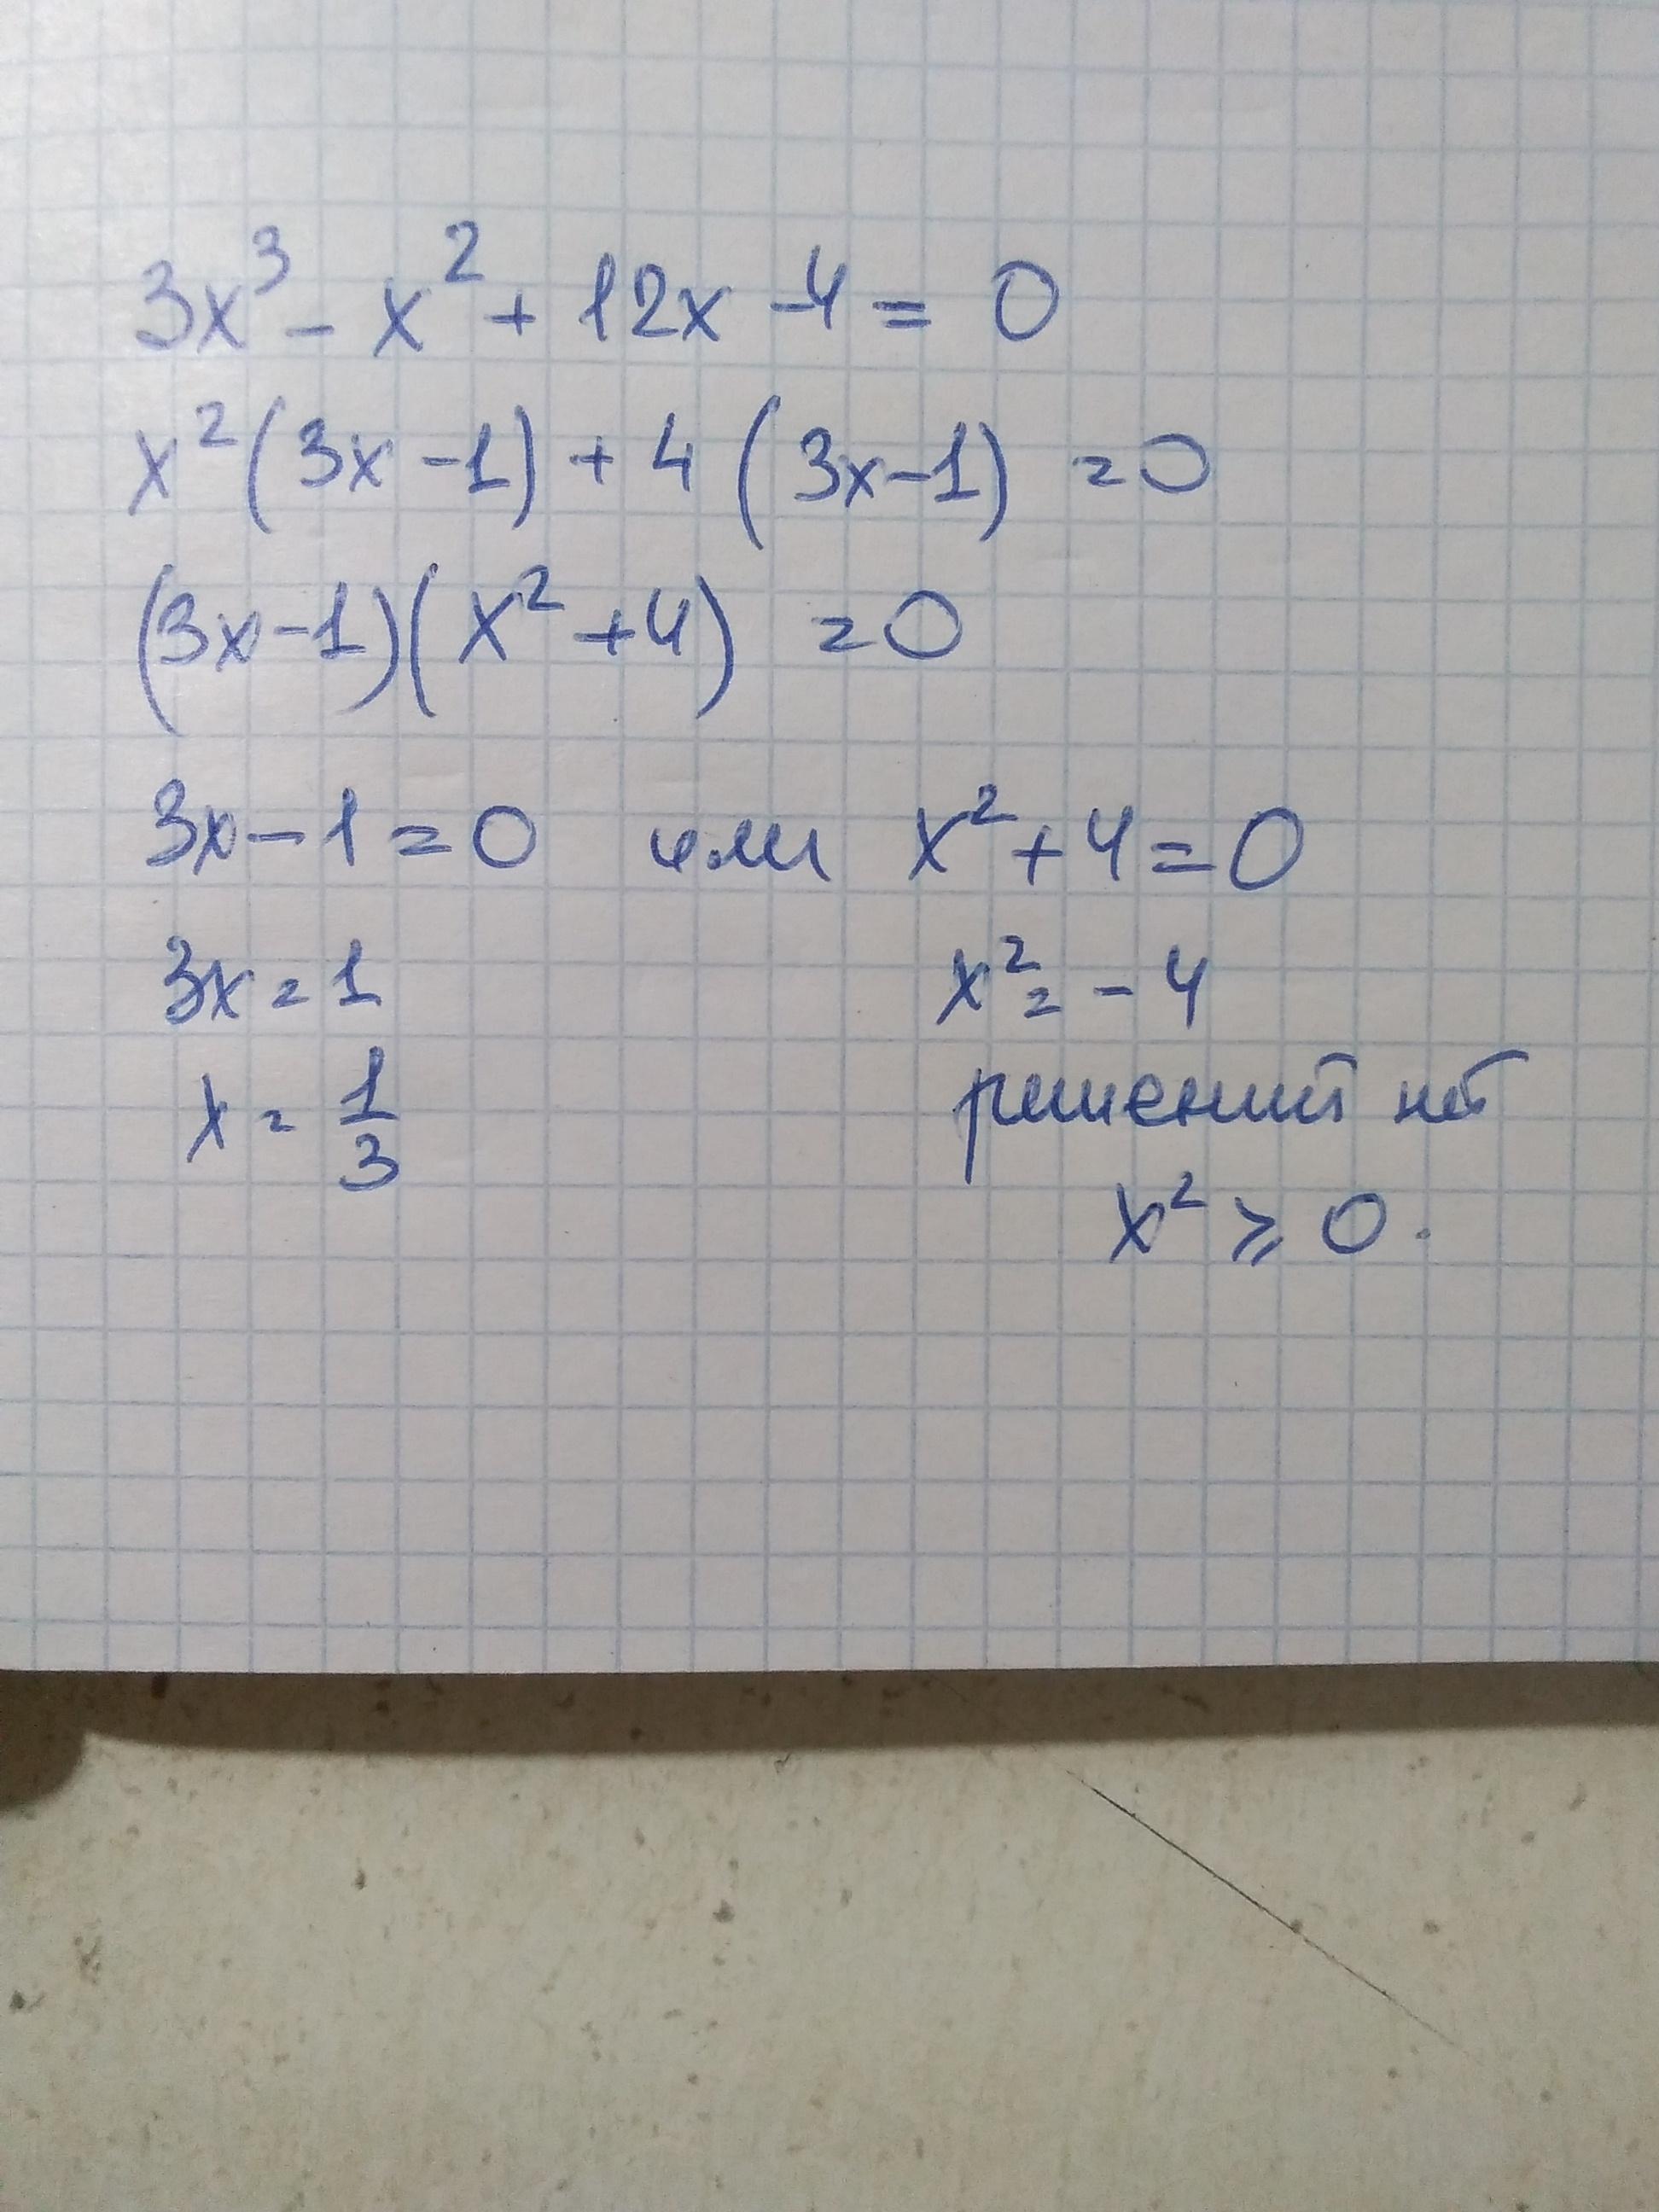 3x³ - x² + 12x - 4 = 0
x²(3x-1) + 4(3x-1) = 0
(3x-1)(x²+4) = 0
3x-1=0 или x²+4=0
3x=1 x²=-4
x = 1/3 решений нет
x² ⩾ 0.